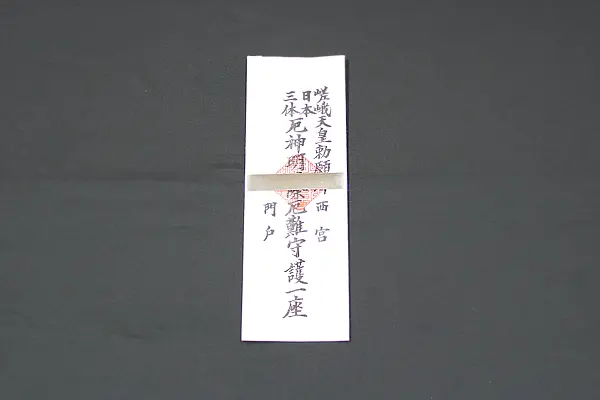 嵯峨天皇勅願 西宮
日本三体厄神明 厄難守護一座
門戸